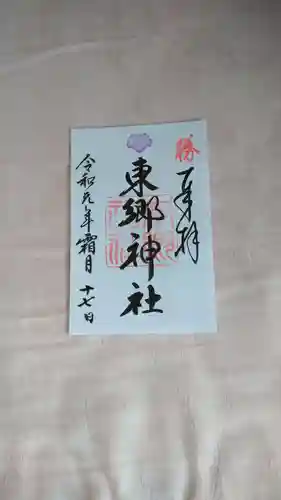 勝
奉拝
東郷神社
令和元年霜月十七日